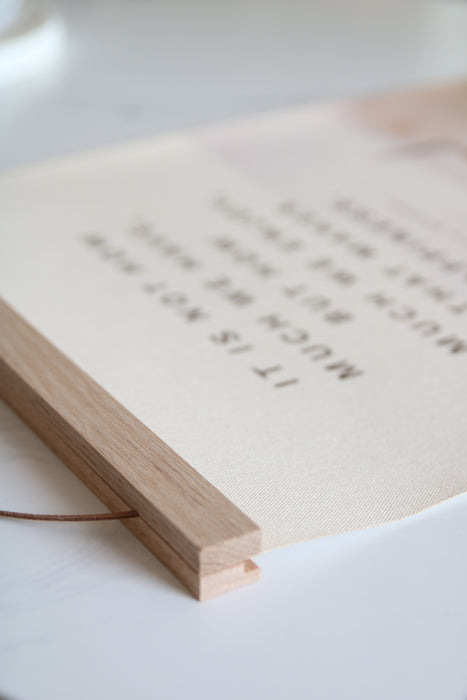 IT IS NOT HOW
MUCH WE HAVE,
BUT HOW
MUCH WE ENJOY
THAT MAKES
HAPPINESS